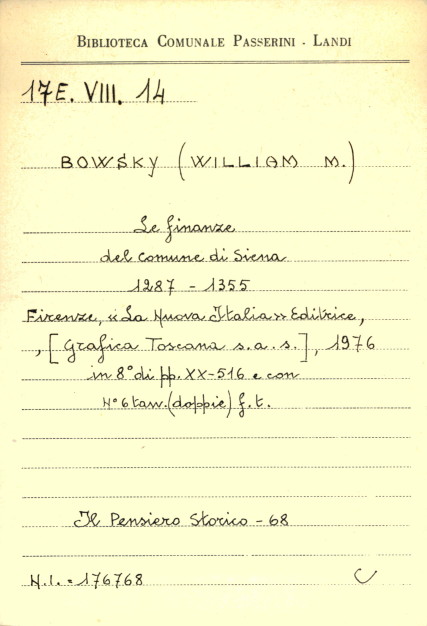 BIBLIOTECA COMUNALE PASSERINI - LANDI
17E. VIII. 14
BOWSKY (WILLIAM M.)
Le finanze
del comune di Siena
1287 - 1355
Firenze, «La Nuova Italia» Editrice,
, [Grafica Toscana s.a.s.], 1976
in 8° di pp. XX-516 e con
N° 6 tavv. (doppie) f.t.
Il Pensiero Storico - 68
N.I. = 176768 C